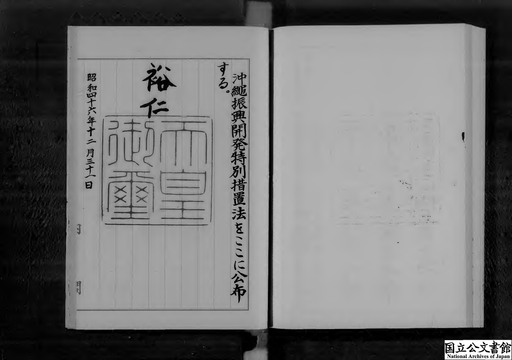 沖繩振興開発特別措置法をここに公布
する。
裕仁
天皇
御璽
昭和四十六年十二月三十一日
国立公文書館
National Archives of Japan